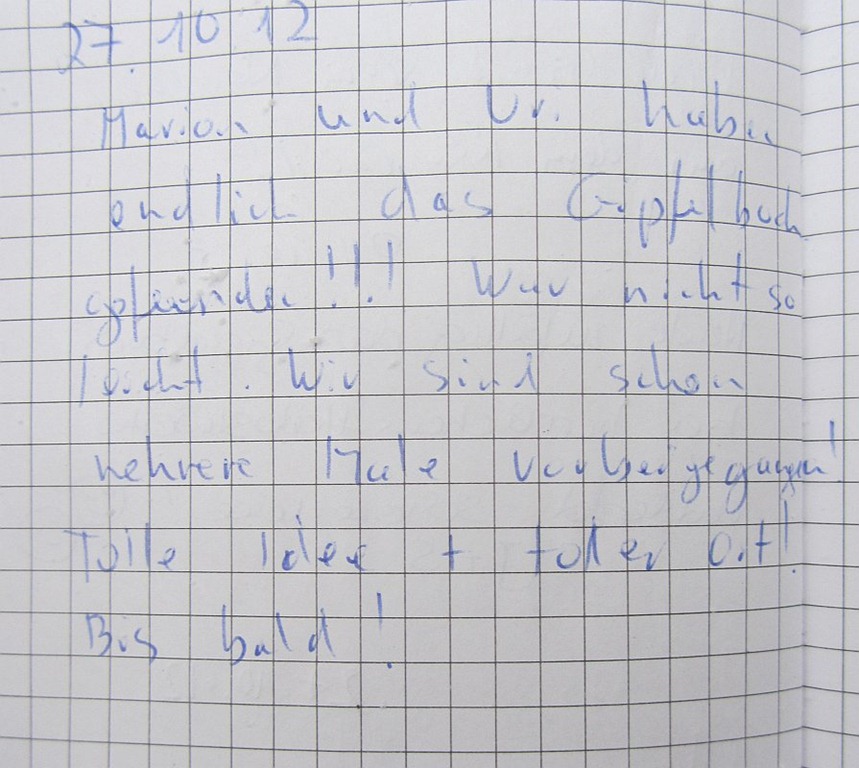 27.10 12
Marion und Ur. haben
endlich das Gipfelbuch
gefunden!!! War nicht so
leicht. Wir sind schon
mehrere Male vorbeigegangen!
Tolle Idee + toller Ort!
Bis bald!